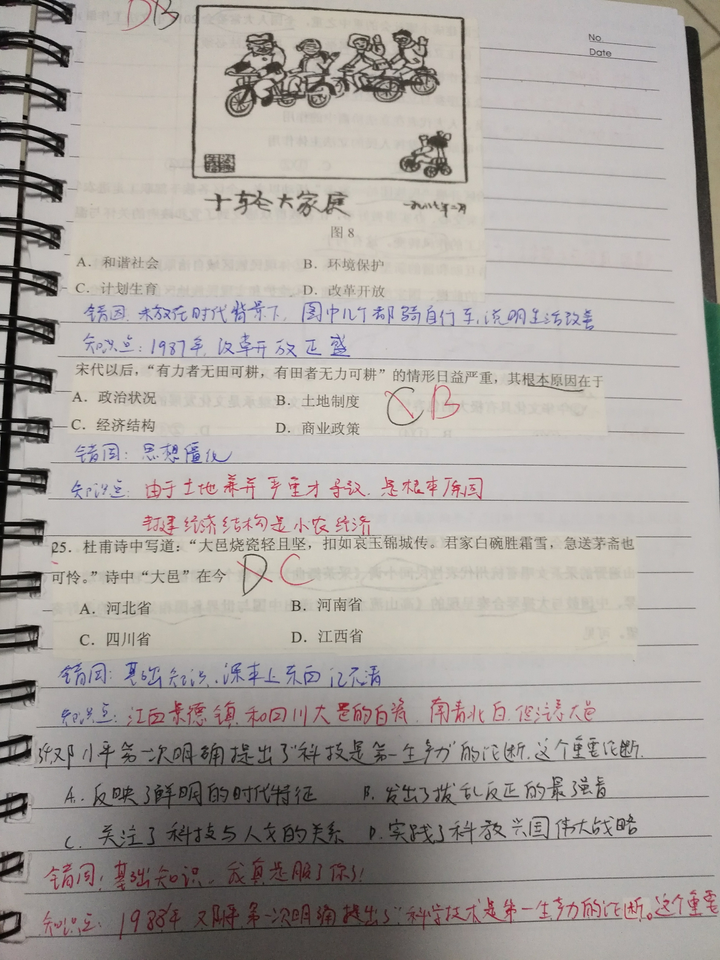 DB
No.
Date
十轻大家庭
一九八七年二月
图 8
A. 和谐社会 B. 环境保护
C. 计划生育 D. 改革开放
错因:未放在时代背景下,图中几个都骑自行车,说明生活改善
知识点:1987年,改革开放正盛
宋代以后,“有力者无田可耕,有田者无力可耕”的情形日益严重,其根本原因在于
A. 政治状况 B. 土地制度 C B
C. 经济结构 D. 商业政策
错因:思想僵化
知识点:由于土地兼并严重才导致,是根本原因
封建经济结构是小农经济
25. 杜甫诗中写道:“大邑烧瓷轻且坚,扣如哀玉锦城传。君家白碗胜霜雪,急送茅斋也
可怜。”诗中“大邑”在今 D C
A. 河北省 B. 河南省
C. 四川省 D. 江西省
错因:基础知识,课本上东西记不清
知识点:江西景德镇和四川大邑的白瓷,南青北白,但注意大邑
邓小平第一次明确提出了“科技是第一生产力”的论断,这个重要论断
A. 反映了鲜明的时代特征 B. 发出了拨乱反正的最强音
C. 关注了科技与人文的关系 D. 实践了科教兴国伟大战略
错因:基础知识,我真是服了你了!
知识点:1988年,邓小平第一次明确提出了“科学技术是第一生产力的论断。这个重要